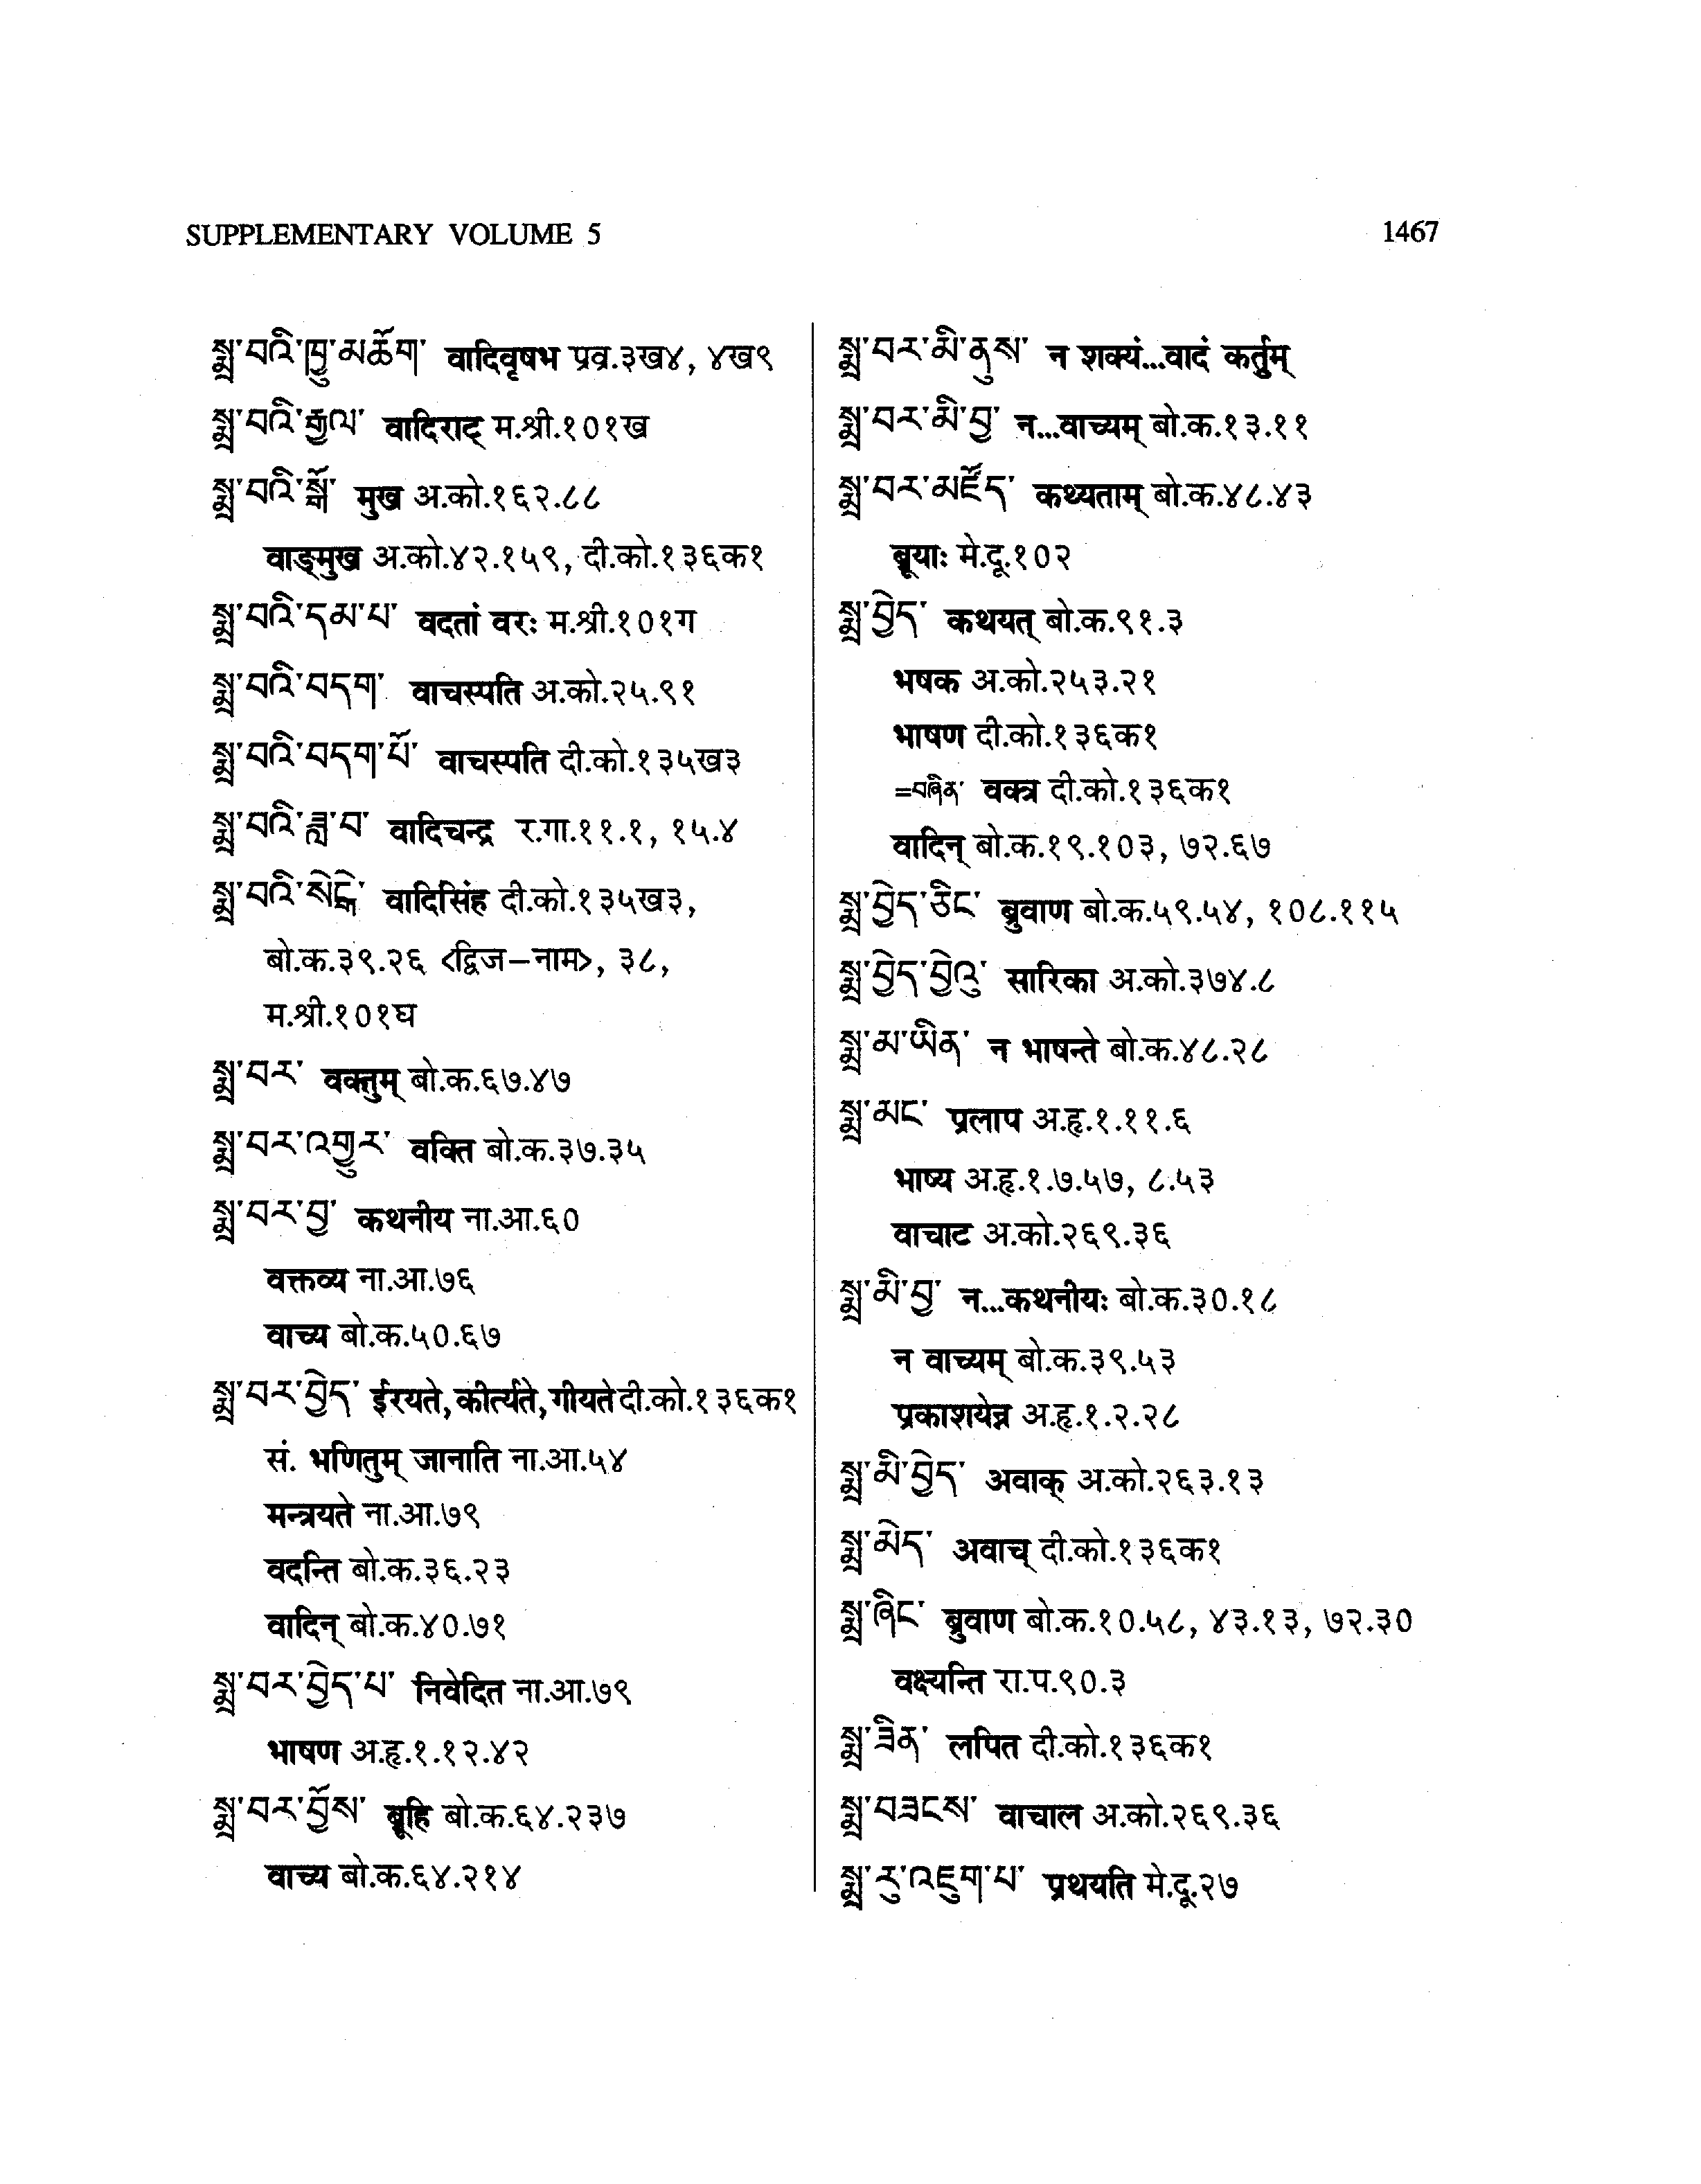 SUPPLEMENTARY VOLUME 5
1467
སྨྲ་བའི་ཁྱུ་མཆོག་ वादिवृषभ प्रव्र.३ख४, ४ख९
སྨྲ་བའི་རྒྱལ་ वादिराट् म.श्री.१०१ख
སྨྲ་བའི་སྒོ་ मुख अ.को.१६२.८८
वाङ्मुख अ.को.४२.१५९, दी.को.१३६क१
སྨྲ་བའི་དམ་པ་ वदतां वरः म.श्री.१०१ग
སྨྲ་བའི་བདག་ वाचस्पति अ.को.२५.९१
སྨྲ་བའི་བདག་པོ་ वाचस्पति दी.को.१३५ख३
སྨྲ་བའི་ཟླ་བ་ वादिचन्द्र र.गा.११.१, १५.४
སྨྲ་བའི་སེངྒེ་ वादिसिंह दी.को.१३५ख३,
बो.क.३९.२६ <द्विज–नाम>, ३८,
म.श्री.१०१घ
སྨྲ་བར་ वक्तुम् बो.क.६७.४७
སྨྲ་བར་འགྱུར་ वक्ति बो.क.३७.३५
སྨྲ་བར་བྱ་ कथनीय ना.आ.६०
वक्तव्य ना.आ.७६
वाच्य बो.क.५०.६७
སྨྲ་བར་བྱེད་ ईरयते, कीर्त्यते, गीयते दी.को.१३६क१
सं. भणितुम् जानाति ना.आ.५४
मन्त्रयते ना.आ.७९
वदन्ति बो.क.३६.२३
वादिन् बो.क.४०.७१
སྨྲ་བར་བྱེད་པ་ निवेदित ना.आ.७९
भाषण अ.हृ.१.१२.४२
སྨྲ་བར་བྱོས་ ब्रूहि बो.क.६४.२३७
वाच्य बो.क.६४.२१४
སྨྲ་བར་མི་ནུས་ न शक्यं...वादं कर्तुम्
སྨྲ་བར་མི་བྱ་ न...वाच्यम् बो.क.१३.११
སྨྲ་བར་མཛོད་ कथ्यताम् बो.क.४८.४३
ब्रूयाः मे.दू.१०२
སྨྲ་བྱེད་ कथयत् बो.क.९१.३
भषक अ.को.२५३.२१
भाषण दी.को.१३६क१
=བཞིན་ वक्त्र दी.को.१३६क१
वादिन् बो.क.१९.१०३, ७२.६७
སྨྲ་བྱེད་ཅིང་ ब्रुवाण बो.क.५९.५४, १०८.११५
སྨྲ་བྱེད་བྱེའུ་ सारिका अ.को.३७४.८
སྨྲ་མ་ཡིན་ न भाषन्ते बो.क.४८.२८
སྨྲ་མང་ प्रलाप अ.हृ.१.११.६
भाष्य अ.हृ.१.७.५७, ८.५३
वाचाट अ.को.२६९.३६
སྨྲ་མི་བྱ་ न...कथनीयः बो.क.३०.१८
न वाच्यम् बो.क.३९.५३
प्रकाशयेन्न अ.हृ.१.२.२८
སྨྲ་མི་བྱེད་ अवाक् अ.को.२६३.१३
སྨྲ་མེད་ अवाच् दी.को.१३६क१
སྨྲ་ཞིང་ ब्रुवाण बो.क.१०.५८, ४३.१३, ७२.३०
वक्ष्यन्ति रा.प.९०.३
སྨྲ་ཟིན་ लपित दी.को.१३६क१
སྨྲ་བཟངས་ वाचाल अ.को.२६९.३६
སྨྲ་རུ་འཇུག་པ་ प्रथयति मे.दू.२७